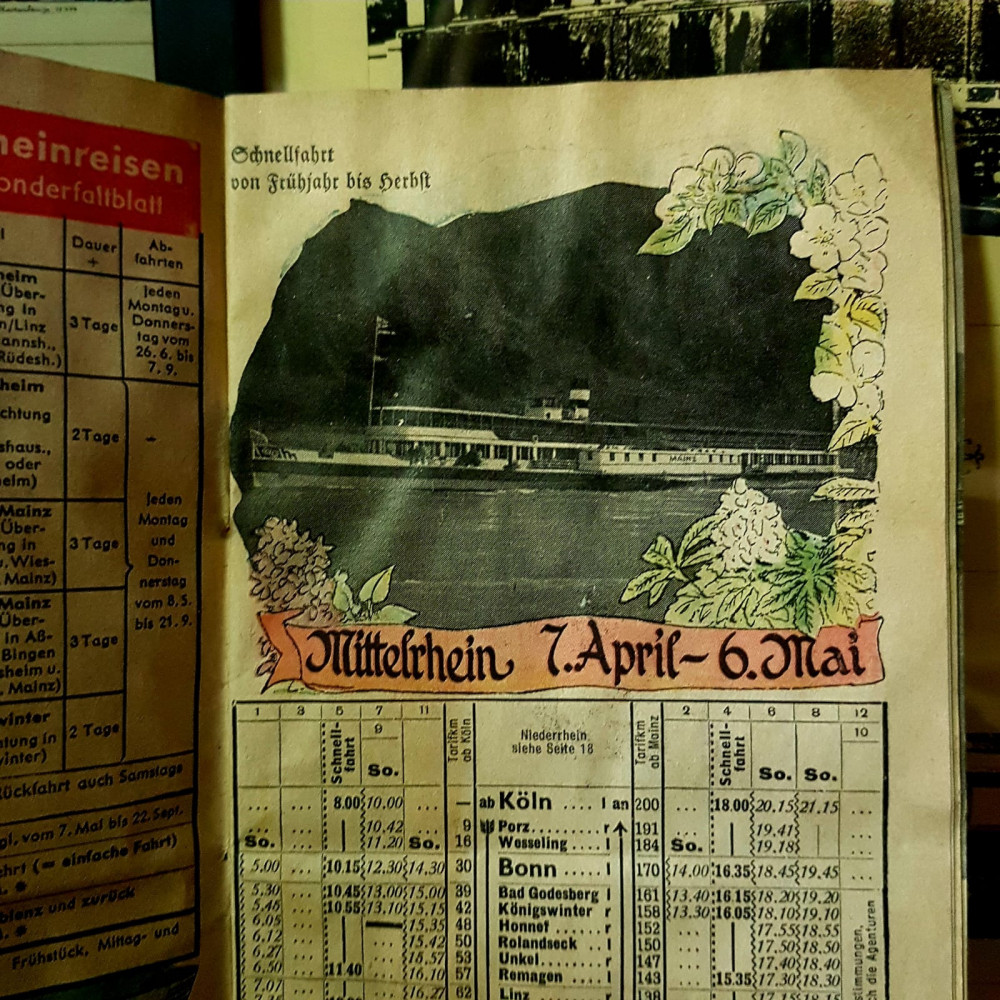 heinreisen
onderfaltblatt
Dauer
+
Ab-
fahrten
heim
Über-
ng in
n/Linz
annsh.,
Rüdesh.)
3 Tage
jeden
Montag u.
Donners-
tag vom
26. 6. bis
7. 9.
heim
chtung
shaus.,
oder
heim)
2 Tage
—
Mainz
Über-
ng in
Wies-
Mainz)
3 Tage
jeden
Montag
und
Don-
nerstag
vom 8. 5.
bis 21. 9.
Mainz
Über-
in Aß-
Bingen
sheim u.
Mainz)
3 Tage
winter
tung in
winter)
2 Tage
Rückfahrt auch Samstags
gl. vom 7. Mai bis 22. Sept.
ahrt (= einfache Fahrt)
blenz und zurück
Frühstück, Mittag- und
Schnellfahrt
von Frühjahr bis Herbst
MAINZ
Mittelrhein 7. April – 6. Mai
1 3 5 7 11 2 4 6 8 12
9 10
Schnell-
fahrt
So.
Tarifkm
ab Köln
Niederrhein
siehe Seite 18
Tarifkm
ab Mainz
Schnell-
fahrt
So. So.
... ... 8.00 10.00 ... — ab Köln .... l an 200 ... 18.00 20.15 21.15 ...
... ... 10.42 ... 9 Porz......... r 191 ... 19.41 ...
So. ... 11.20 So. 16 Wesseling .... l 184 So. 19.18 ...
5.00 ... 10.15 12.30 14.30 30 Bonn ..... l 170 14.00 16.35 18.45 19.45 ...
5.30 ... 10.45 13.00 15.00 39 Bad Godesberg l 161 13.40 16.15 18.20 19.20
5.45 ... 10.55 13.10 15.15 42 Königswinter r 158 13.30 16.05 18.10 19.10
6.05 ... — 15.35 48 Honnef ...... r 152 ... 17.55 18.55
6.12 ... 15.42 50 Rolandseck .. l 150 ... 17.50 18.50
6.27 ... 53 Unkel........ r 147 ... 17.40 18.40
6.50 ... 11.40 16.10 57 Remagen .... l 143 ... 15.35 17.30 18.30
7.07 ... 16.27 62 Linz r 138
stimmungen,
ch die Agenturen